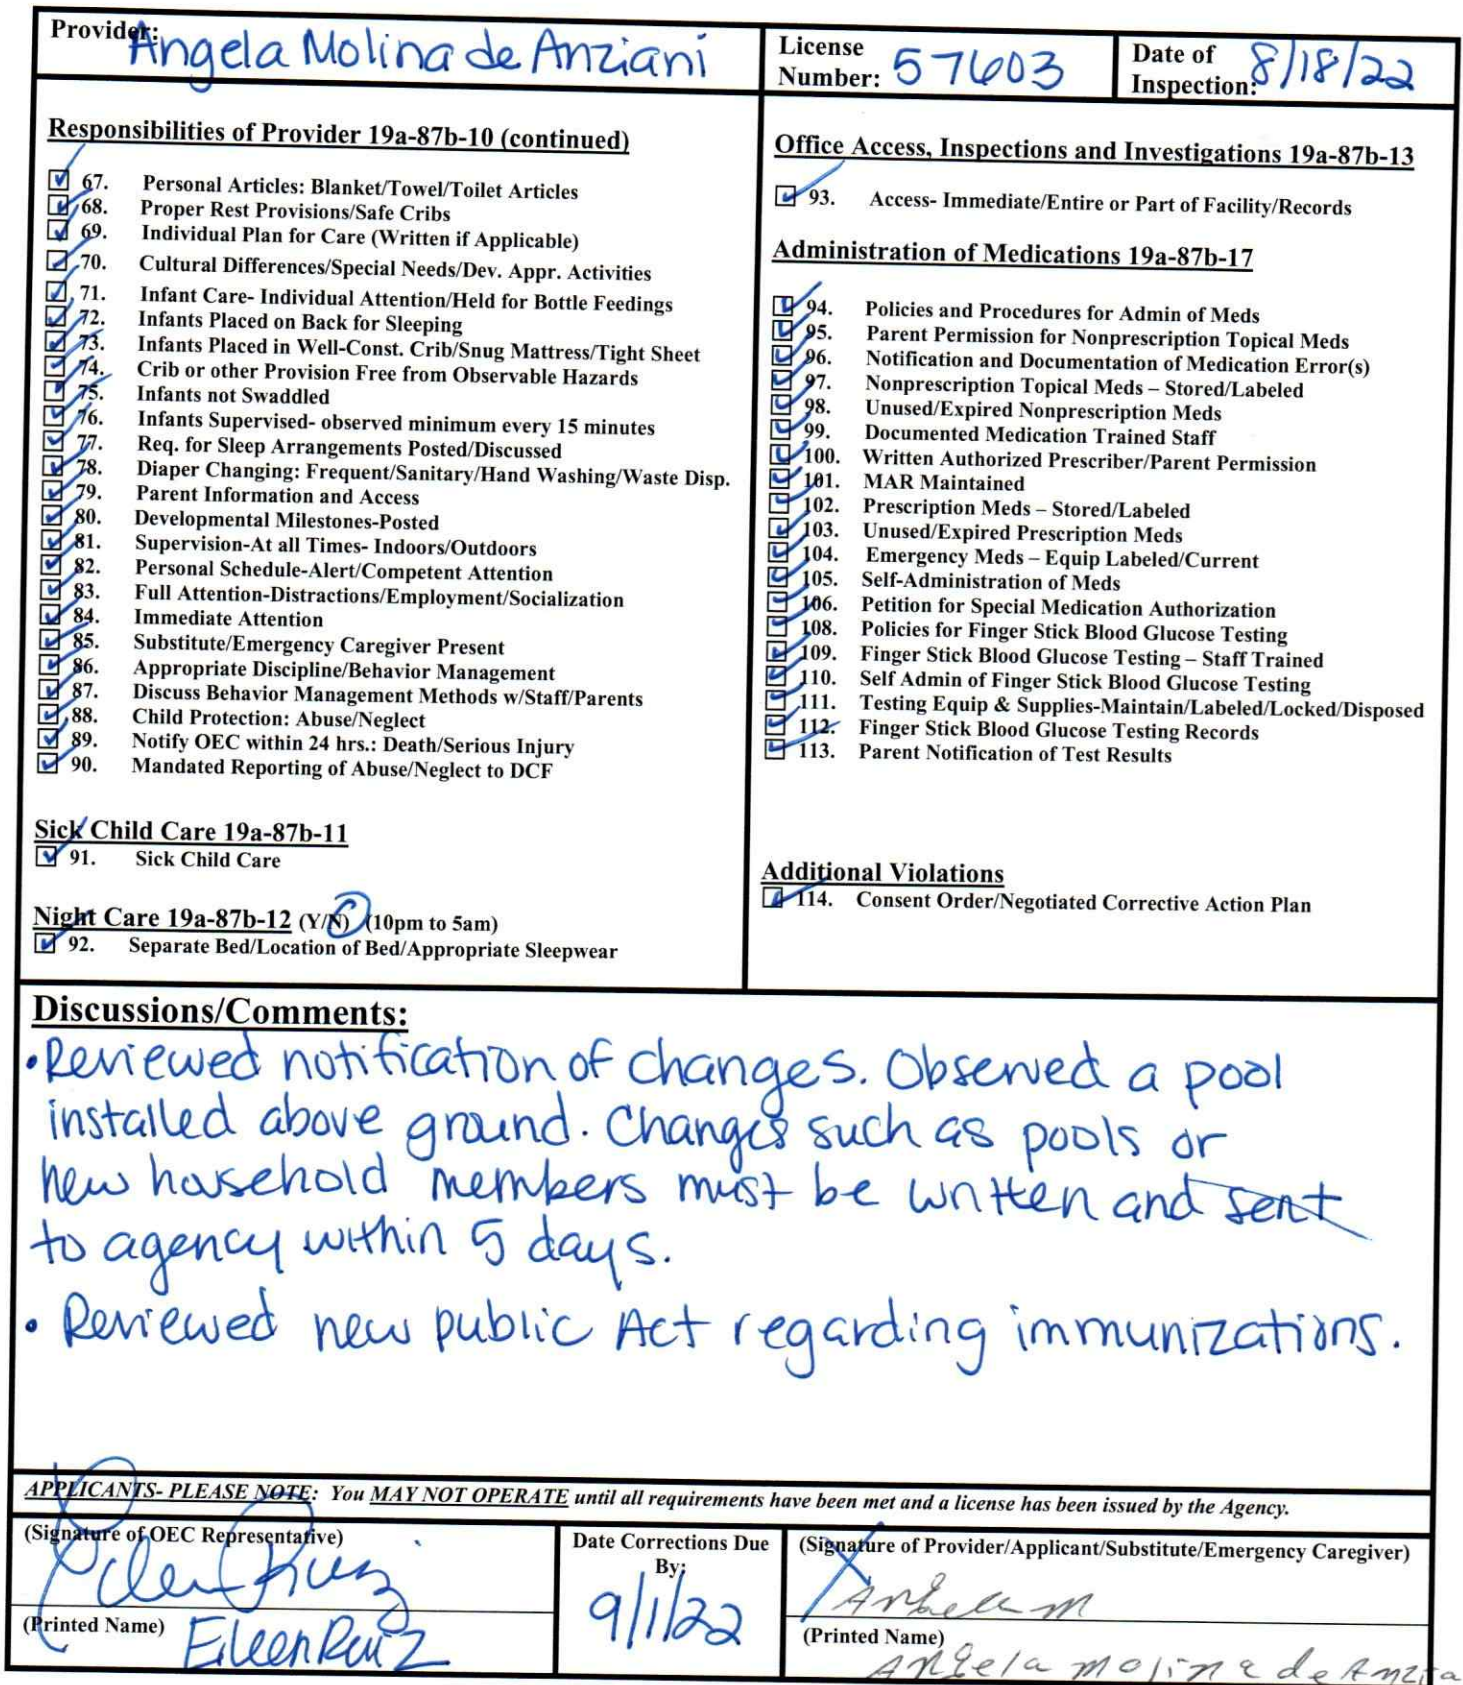 Provider: Angela Molina de Anziani
License Number: 57603
Date of Inspection: 8/18/22
Responsibilities of Provider 19a-87b-10 (continued)
67. Personal Articles: Blanket/Towel/Toilet Articles
68. Proper Rest Provisions/Safe Cribs
69. Individual Plan for Care (Written if Applicable)
70. Cultural Differences/Special Needs/Dev. Appr. Activities
71. Infant Care- Individual Attention/Held for Bottle Feedings
72. Infants Placed on Back for Sleeping
73. Infants Placed in Well-Const. Crib/Snug Mattress/Tight Sheet
74. Crib or other Provision Free from Observable Hazards
75. Infants not Swaddled
76. Infants Supervised- observed minimum every 15 minutes
77. Req. for Sleep Arrangements Posted/Discussed
78. Diaper Changing: Frequent/Sanitary/Hand Washing/Waste Disp.
79. Parent Information and Access
80. Developmental Milestones-Posted
81. Supervision-At all Times- Indoors/Outdoors
82. Personal Schedule-Alert/Competent Attention
83. Full Attention-Distractions/Employment/Socialization
84. Immediate Attention
85. Substitute/Emergency Caregiver Present
86. Appropriate Discipline/Behavior Management
87. Discuss Behavior Management Methods w/Staff/Parents
88. Child Protection: Abuse/Neglect
89. Notify OEC within 24 hrs.: Death/Serious Injury
90. Mandated Reporting of Abuse/Neglect to DCF
Sick Child Care 19a-87b-11
91. Sick Child Care
Night Care 19a-87b-12 (Y/N) (10pm to 5am)
92. Separate Bed/Location of Bed/Appropriate Sleepwear
Office Access, Inspections and Investigations 19a-87b-13
93. Access- Immediate/Entire or Part of Facility/Records
Administration of Medications 19a-87b-17
94. Policies and Procedures for Admin of Meds
95. Parent Permission for Nonprescription Topical Meds
96. Notification and Documentation of Medication Error(s)
97. Nonprescription Topical Meds – Stored/Labeled
98. Unused/Expired Nonprescription Meds
99. Documented Medication Trained Staff
100. Written Authorized Prescriber/Parent Permission
101. MAR Maintained
102. Prescription Meds – Stored/Labeled
103. Unused/Expired Prescription Meds
104. Emergency Meds – Equip Labeled/Current
105. Self-Administration of Meds
106. Petition for Special Medication Authorization
108. Policies for Finger Stick Blood Glucose Testing
109. Finger Stick Blood Glucose Testing – Staff Trained
110. Self Admin of Finger Stick Blood Glucose Testing
111. Testing Equip & Supplies-Maintain/Labeled/Locked/Disposed
112. Finger Stick Blood Glucose Testing Records
113. Parent Notification of Test Results
Additional Violations
114. Consent Order/Negotiated Corrective Action Plan
Discussions/Comments:
• Reviewed notification of changes. Observed a pool
installed above ground. Changes such as pools or
new household members must be written and sent
to agency within 5 days.
• Reviewed new public Act regarding immunizations.
APPLICANTS- PLEASE NOTE: You MAY NOT OPERATE until all requirements have been met and a license has been issued by the Agency.
(Signature of OEC Representative)
Eileen Ruiz
(Printed Name) Eileen Ruiz
Date Corrections Due
By:
9/1/22
(Signature of Provider/Applicant/Substitute/Emergency Caregiver)
Angela m
(Printed Name)
Angela molina de Anzia